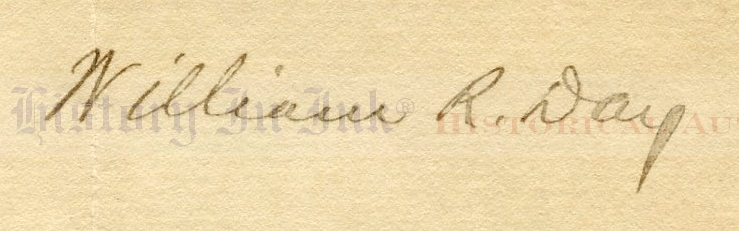 William R. Day
History In Ink® Historical Au